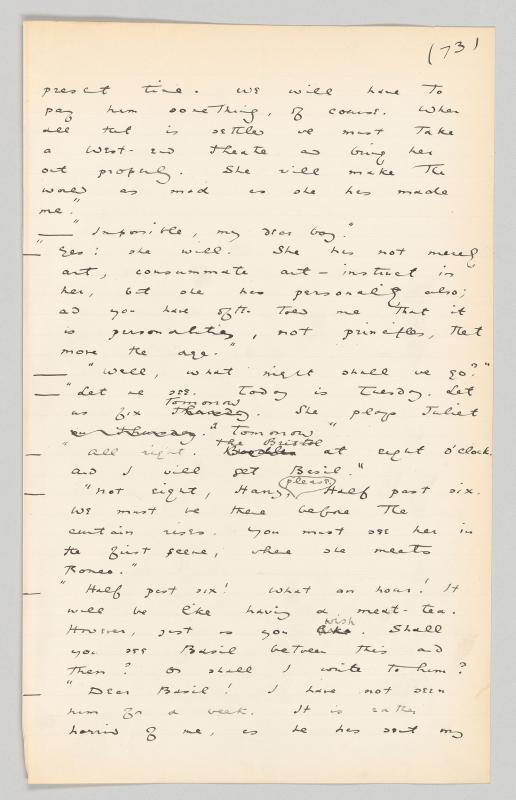 (73)
present time. We will have to
pay him something, of course. When
all that is settled we must take
a West-end theatre and bring her
out properly. She will make the
world as mad as she has made
me."
— Impossible, my dear boy."
"Yes: she will. She has not merely
art, consummate art-instinct in
her, but she has personality also;
and you have often told me that it
is personalities, not principles, that
move the age."
— "Well, what night shall we go?"
— "Let me see. Today is Tuesday. Let
Tomorrow
us fix Thursday. She plays Juliet
on Thursday." Tomorrow"
the Bristol
"All right. at eight o'clock.
and I will get Basil."
please.
"not eight, Harry, Half past six.
We must be there before the
curtain rises. You must see her in
the first scene, where she meets
Romeo."
"Half past six! What an hour! It
will be like having a meat-tea.
wish
However, just as you like. Shall
you see Basil between this and
then? Or shall I write to him?
"Dear Basil! I have not seen
him for a week. It is rather
horrid of me, as he has sent my